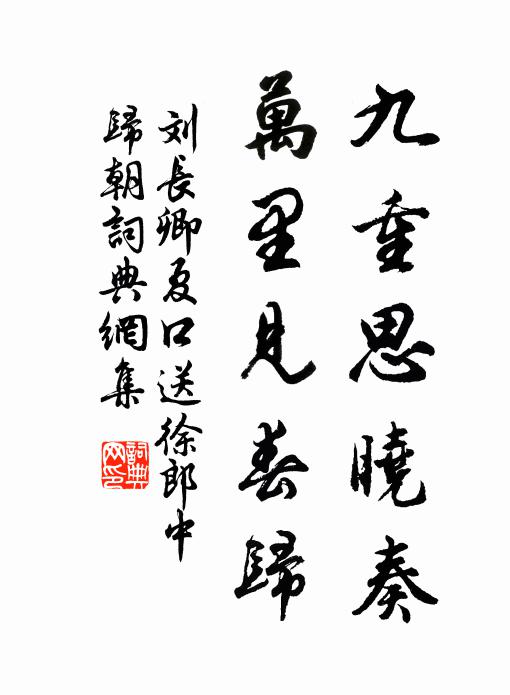 九重思曉奏
萬里見春歸
刘長卿夏口送徐郎中
歸朝詞典網集
詞典網印